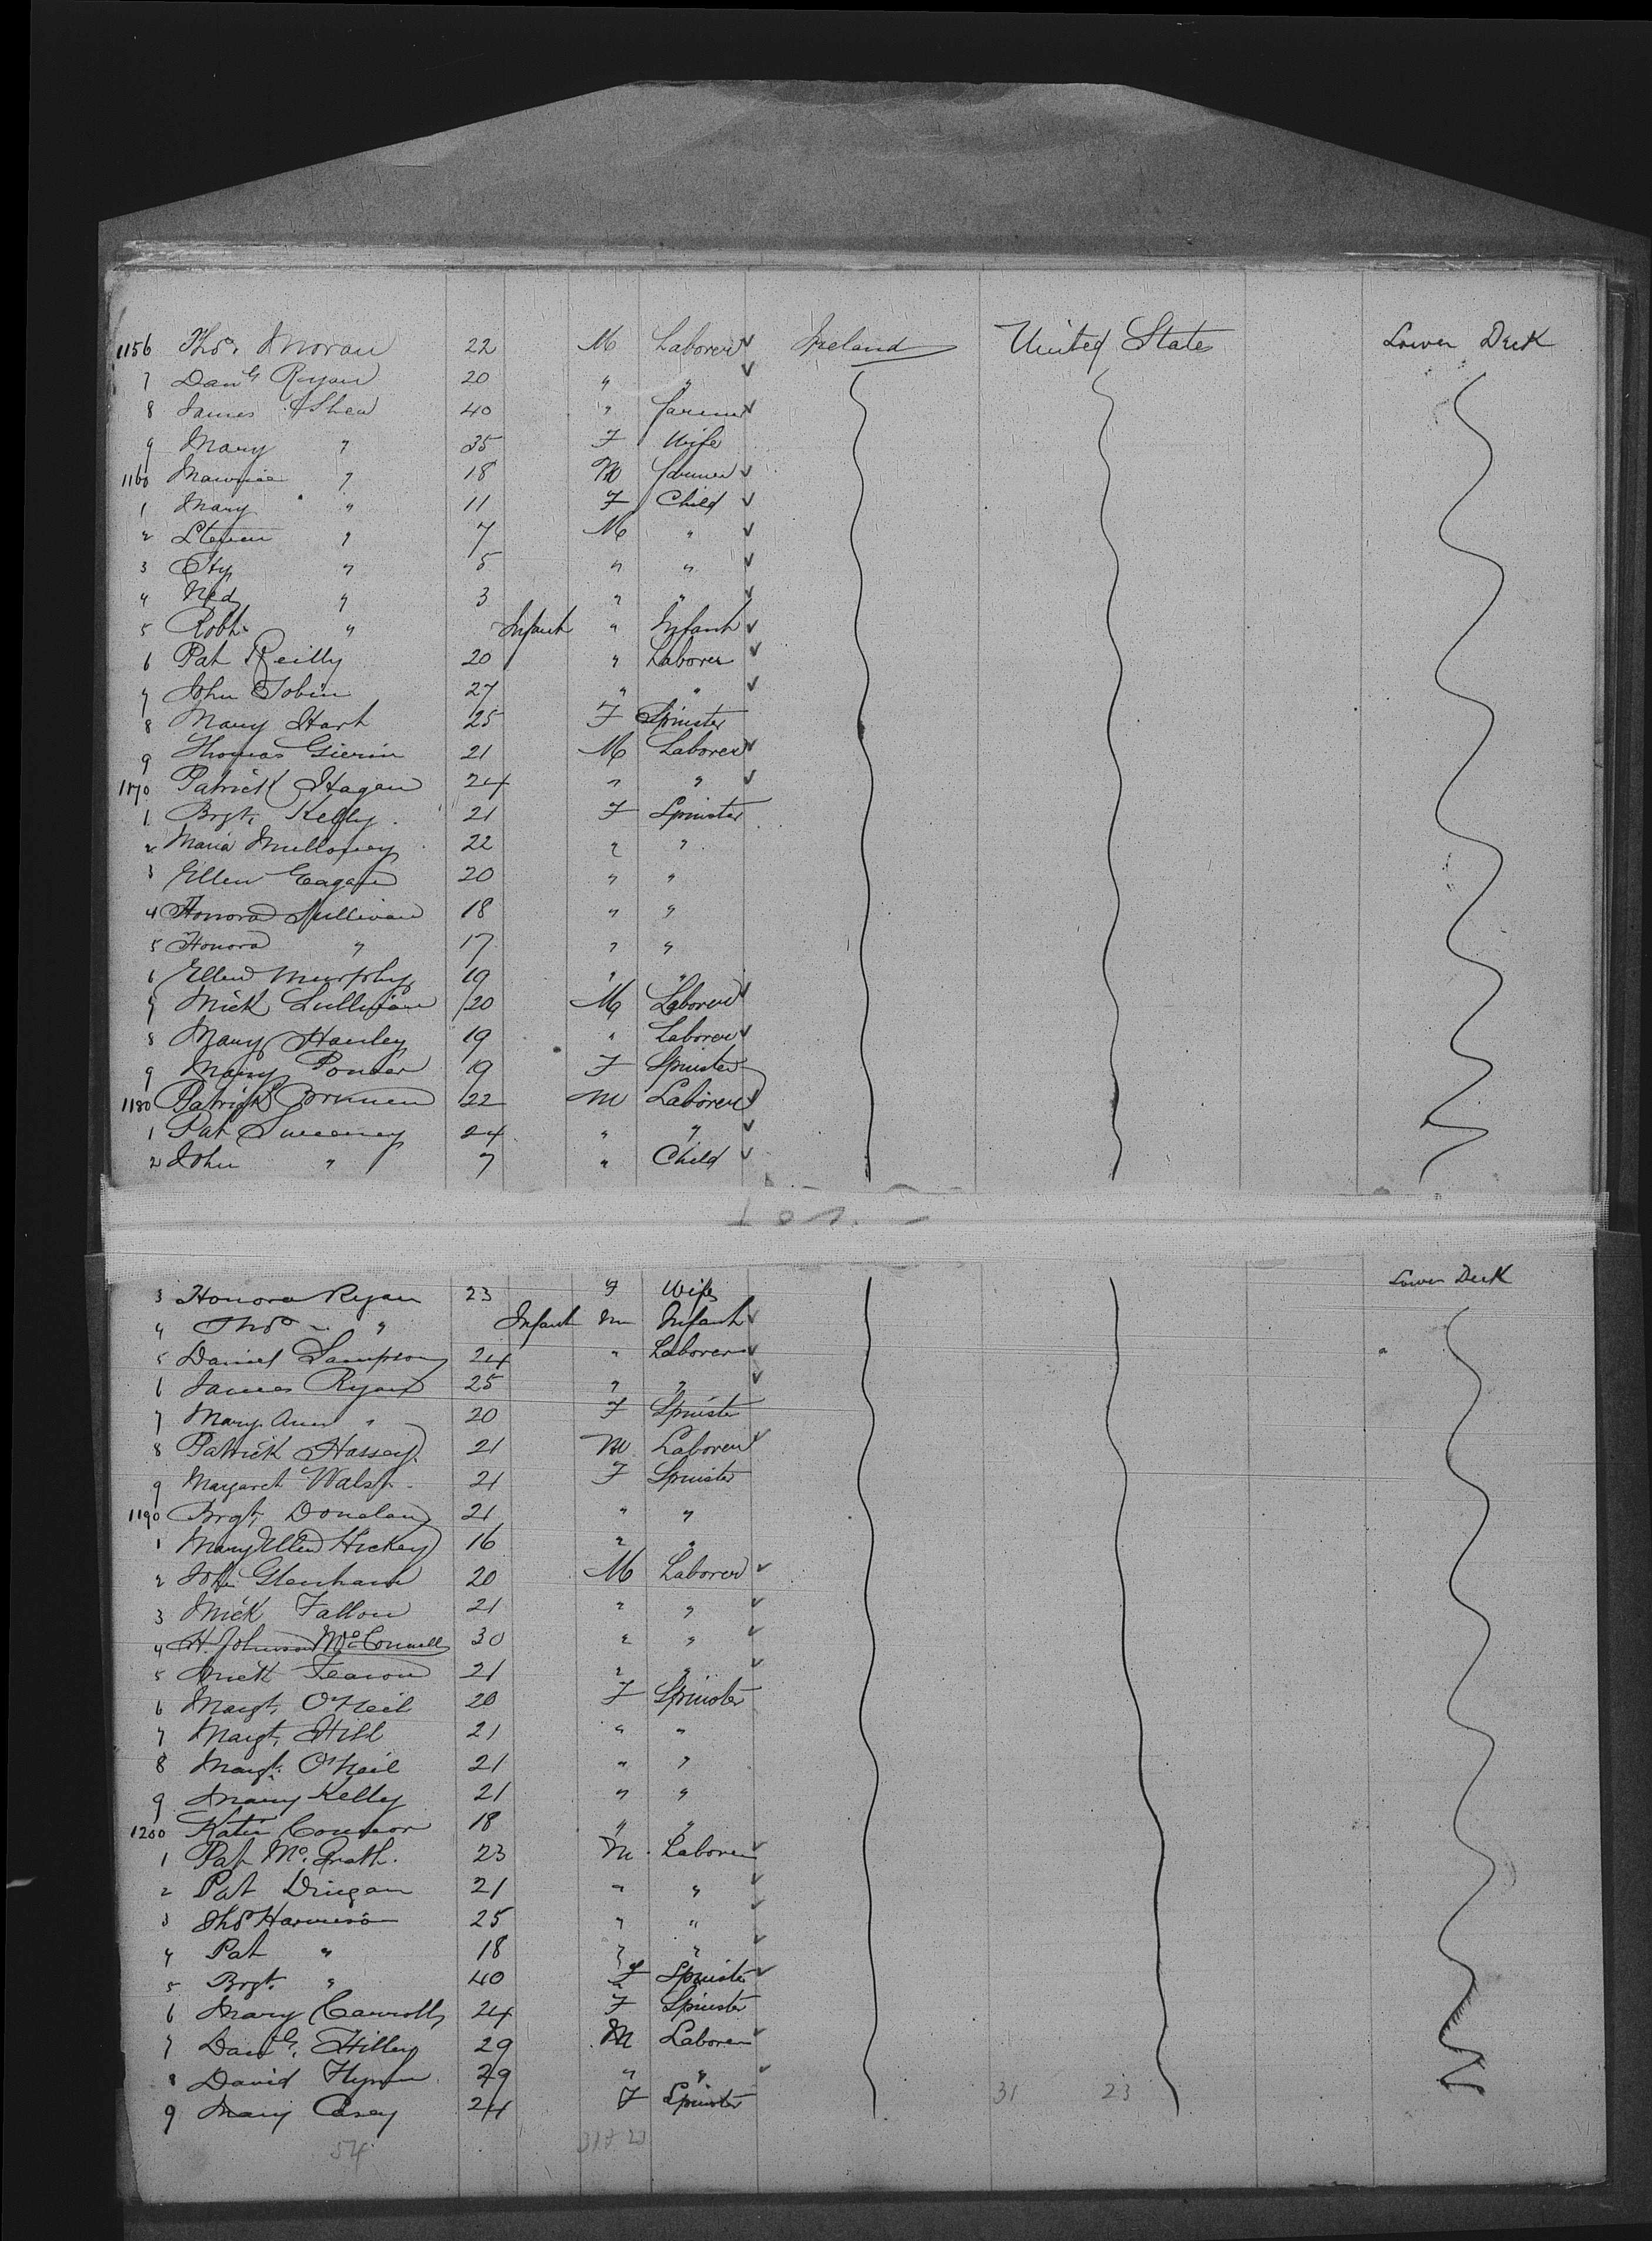 1156 Thos. Moran 22 M Laborer ✓ Ireland United States Lower Deck
7 Danl Ryan 20 " " ✓
8 James OShea 40 " farmer ✓
9 Mary " 35 F Wife
1160 Maurice " 18 M farmer ✓
1 Mary " 11 F Child ✓
2 Steven " 7 M " ✓
3 " 5 " " ✓
4 Ned " 3 " " ✓
5 Robt " Infant " Infant ✓
6 Pat Reilly 20 " Laborer ✓
7 John Tobin 27 " " ✓
8 Mary Hart 25 F Spinster
9 Thomas Gierin 21 M Laborer ✓
1170 Patrick Hagan 24 " " ✓
1 Brgt. Kelly 21 F Spinster
2 Maria Mulloney 22 " "
3 Ellen Eagan 20 " "
4 Honora Sullivan 18 " "
5 Honora " 17 " "
6 Ellen Murphy 19 " "
7 Mick Sullivan 20 M Laborer ✓
8 Mary Hanley 19 " Laborer ✓
9 Mary Ponder 19 F Spinster
1180 Patrick 22 M Laborer ✓
1 Pat Sweeney 24 " " ✓
2 John " 7 " Child ✓
3 Honora Ryan 23 F Wife Lower Deck
4 Thos " Infant M Infant ✓
5 Daniel Sampson 24 " Laborer ✓
6 James Ryan 25 " " ✓
7 Mary Ann " 20 F Spinster
8 Patrick Hassey 21 M Laborer ✓
9 Margaret Walsh 21 F Spinster
1190 Brgt. Donelan 21 " "
1 Mary Ellen Hickey 16 " "
2 John Glenham 20 M Laborer ✓
3 Mick Fallon 21 " " ✓
4 H. Johnson McConnell 30 " " ✓
5 Mick 21 " " ✓
6 Margt. O'Neil 20 F Spinster
7 Margt. Hill 21 " "
8 Margt. O'Neil 21 " "
9 Mary Kelly 21 " "
1200 Katie Connor 18 " "
1 Pat McGrath. 23 M Laborer ✓
2 Pat Dingan 21 " " ✓
3 Thos Harrison 25 " " ✓
4 Pat " 18 " " ✓
5 Brgt. " 40 F Spinster ✓
6 Mary Carroll 24 F Spinster
7 Danl. Hilley 29 M Laborer ✓
8 David Flynn 29 " " ✓
9 Mary Casey 24 F Spinster
31 23
54